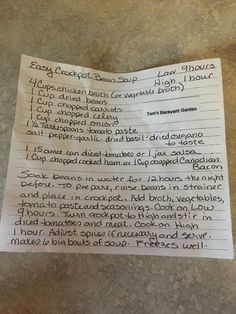 Easy Crockpot Bean Soup Low 9 hours
High 1 hour
4 Cups chicken broth (or vegetable broth)
1 Cup dried beans
1 Cup chopped carrots
1 Cup chopped celery
Tom's Backyard Garden
1 Cup chopped onions
1 ½ Tablespoons tomato paste
salt-pepper-garlic-dried basil-dried oregano
to taste
1 15 ounce can diced tomatoes or 1 jar salsa
1 Cup chopped cooked ham or 1 Cup chopped Canadian
Bacon
Soak beans in water for 12 hours the night
before. To prepare, rinse beans in strainer
and place in crockpot. Add broth, vegetables,
tomato paste and seasonings. Cook on Low
9 hours. Turn crockpot to High and stir in
diced tomatoes and meat. Cook on High
1 hour. Adjust spices if necessary and serve.
makes 6 big bowls of soup. Freezes well.